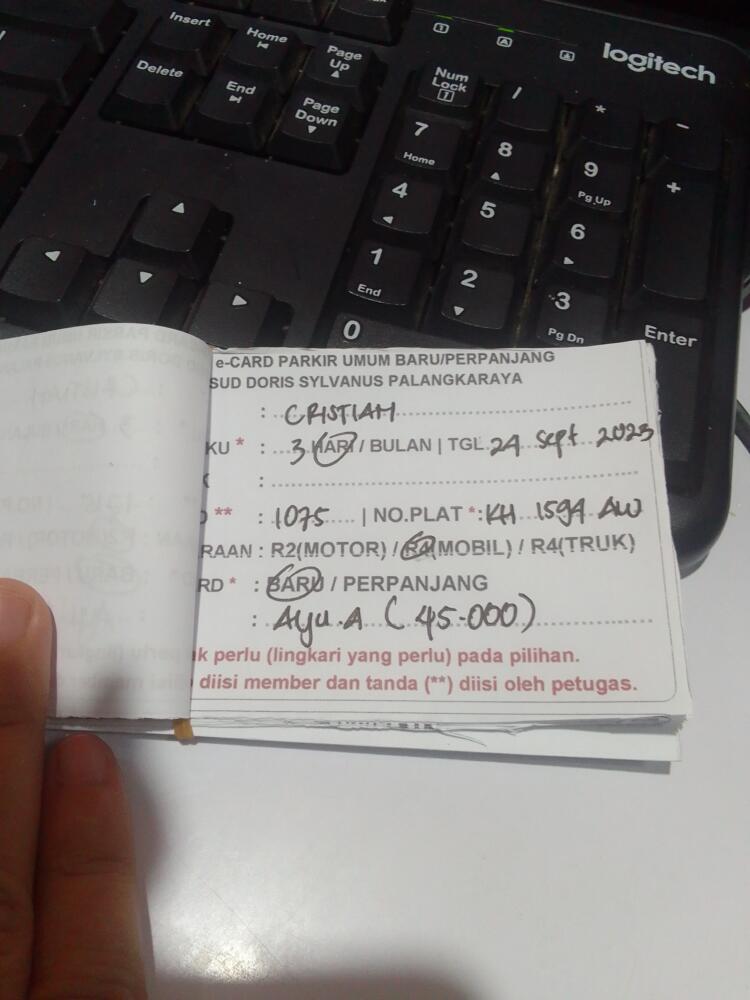 Insert Home Page Up
Delete End Page Down
logitech
Num Lock / * -
7 Home 8 9 Pg Up +
4 5 6
1 End 2 3 Pg Dn Enter
0
e-CARD PARKIR UMUM BARU/PERPANJANG
SUD DORIS SYLVANUS PALANGKARAYA
: CRISTIAH
KU * : 3 HARI / BULAN | TGL. 24 Sept 2023
:
** : 1075 | NO.PLAT * : KH 1594 AW
RAAN : R2(MOTOR) / R4(MOBIL) / R4(TRUK)
RD * : BARU / PERPANJANG
: Ayu.A ( 45.000)
k perlu (lingkari yang perlu) pada pilihan.
diisi member dan tanda (**) diisi oleh petugas.